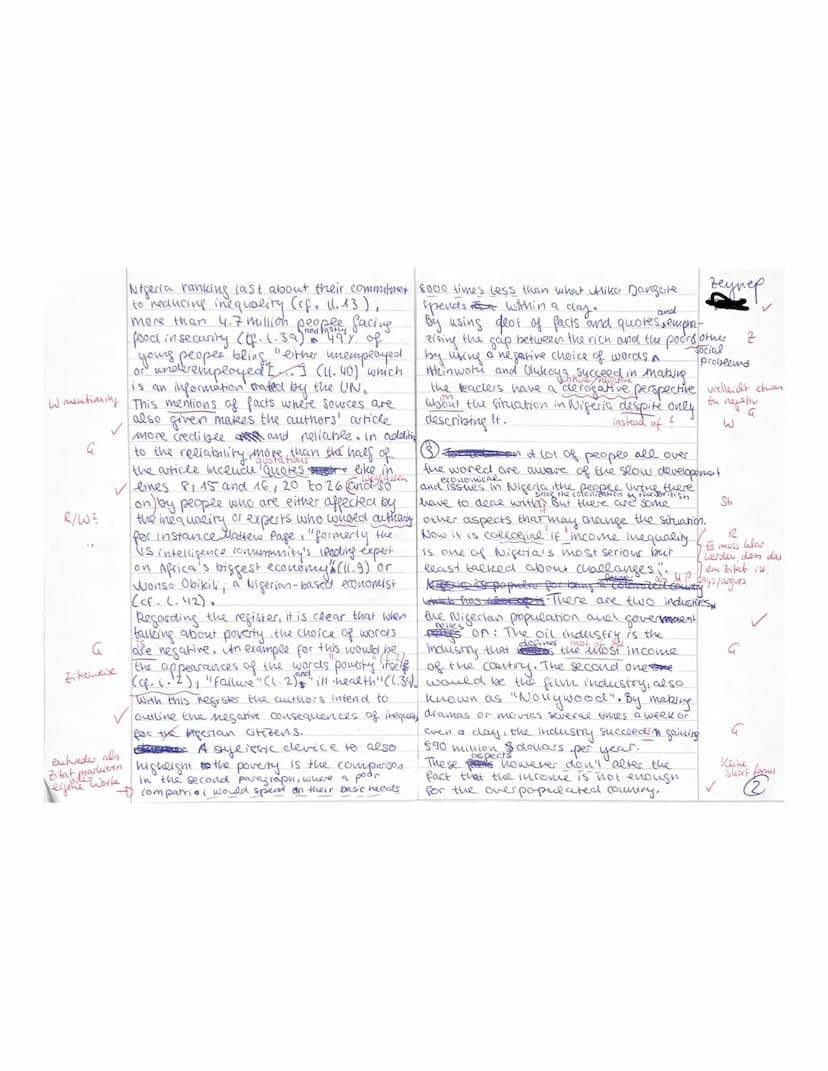 Nigeria ranking last about their commitment
to reducing inequality (cf. ll. 13),
more than 4.7 million people facing
food insecurity (cf. l. 39) and lastly 49% of
young people bling "either unemployed
or underemployed [...]" (ll. 40) which
is an information stated by the UN.
This mentions of facts where sources are
also given makes the authors' article
more credible and reliable. In addition
to the reliability, more than the half of
the article include quotations like in
lines 8, 15 and 16, 20 to 26 (and so
on) by people who are either affected by
the inequality or experts who
for instance Mattew Page, "formerly the
US intelligence community's leading expert
on Africa's biggest economy" (ll. 9) or
Nonso Obikili, a Nigerian-based economist
(cf. l. 42).
Regarding the register, it is clear that when
talking about poverty the choice of words
are negative. An example for this would be
the appearances of the words "poverty" itself
(cf. l. 2), "failure" (l. 2) and "ill-health" (l. 39).
With this register the authors intend to
outline the negative consequences of inequality
for the Nigerian citizens.
A stylistic device to also
highlight to the poverty is the comparison
in the second paragraph, where a poor
compatriot would spend on their basic needs
W mentioning
G
weglassen
R/W?
G
Zitierweise
entweder als
Zitat markieren
oder
eigene Worte
8000 times less than what Aliko Dangote
spends within a day.
By using alot of facts and quotes, and empha-
sising the gap between the rich and the poor & other social problems
by using a negative choice of words
Akinwotu and Olukoya succeed in making
the leaders have a derogative perspective
about the situation in Nigeria despite only
describing it.
③ A lot of people all over
the world are aware of the slow development
and economical issues in Nigeria, the people living there
have to deal with since the colonization of the British. But there are some
other aspects that may change the situation.
Now it is if "income inequality
is one of Nigeria's most serious but
least talked about challanges".
There are two industries,
the Nigerian population and government
relies on: The oil industry is the
industry that defines the most income
of the cantry. The second one
would be the film industry, also
known as "Nollywood". By making
dramas or movies several times a week or
even a day, the industry succeed in gaining
590 million $ dollars per year.
These aspects however don't alter the
fact that the income is not enough
for the overpopulated country.
Zeynep
Z
critical/negative
vielleicht etwas
zu negativ
on
G
W
instead of ?
Sb
R
Es muss klar
werden, dass das
ein Zitat ist
as MP says/argues
most of the
G
G
keine
short forms
②